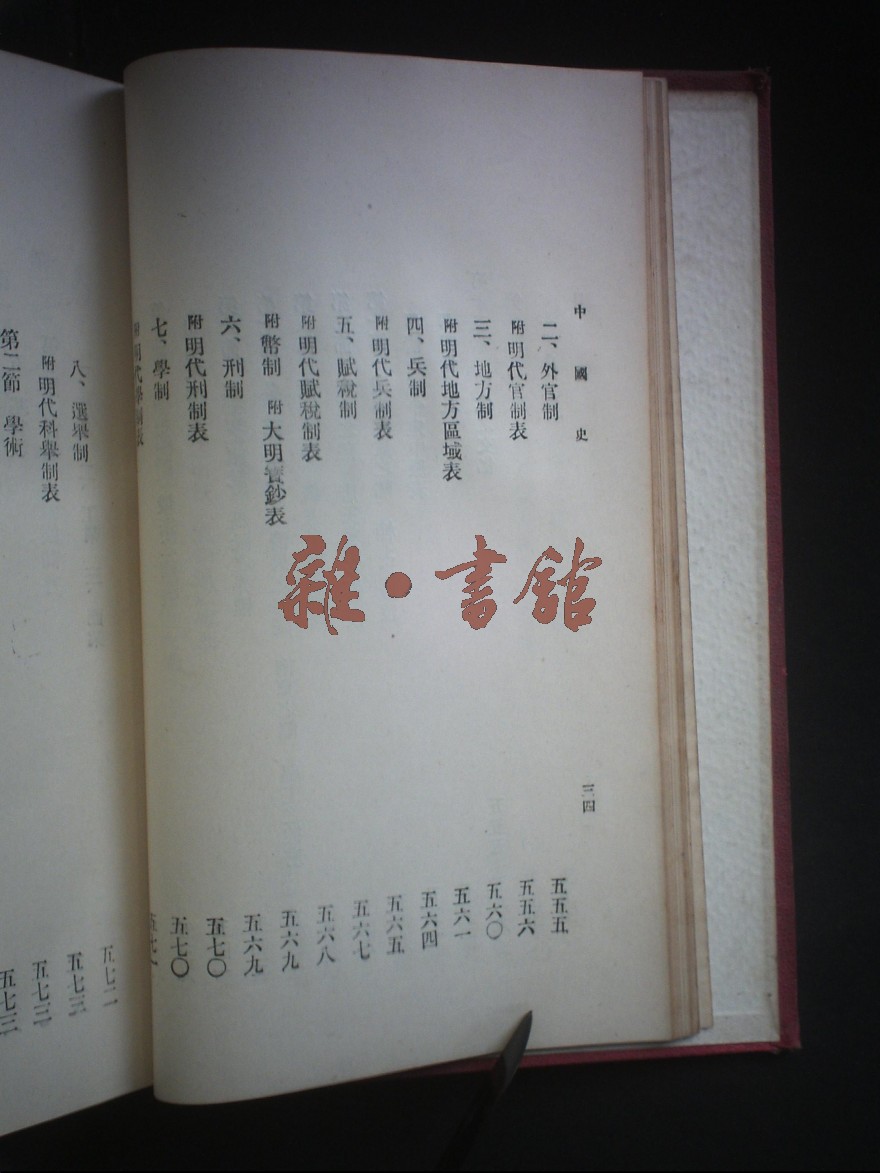 中國史 三四
二、外官制 五五五
附明代官制表 五五六
三、地方制 五六〇
附明代地方區域表 五六一
四、兵制 五六四
附明代兵制表 五六五
五、賦稅制 五六七
附明代賦稅制表 五六八
附幣制 附大明寶鈔表 五六九
六、刑制 五六九
附明代刑制表 五七〇
七、學制 五七〇
附明代學制表 五七一
八、選舉制 五七二
附明代科舉制表 五七三
第二節 學術 五七三
五七三
雜·書館